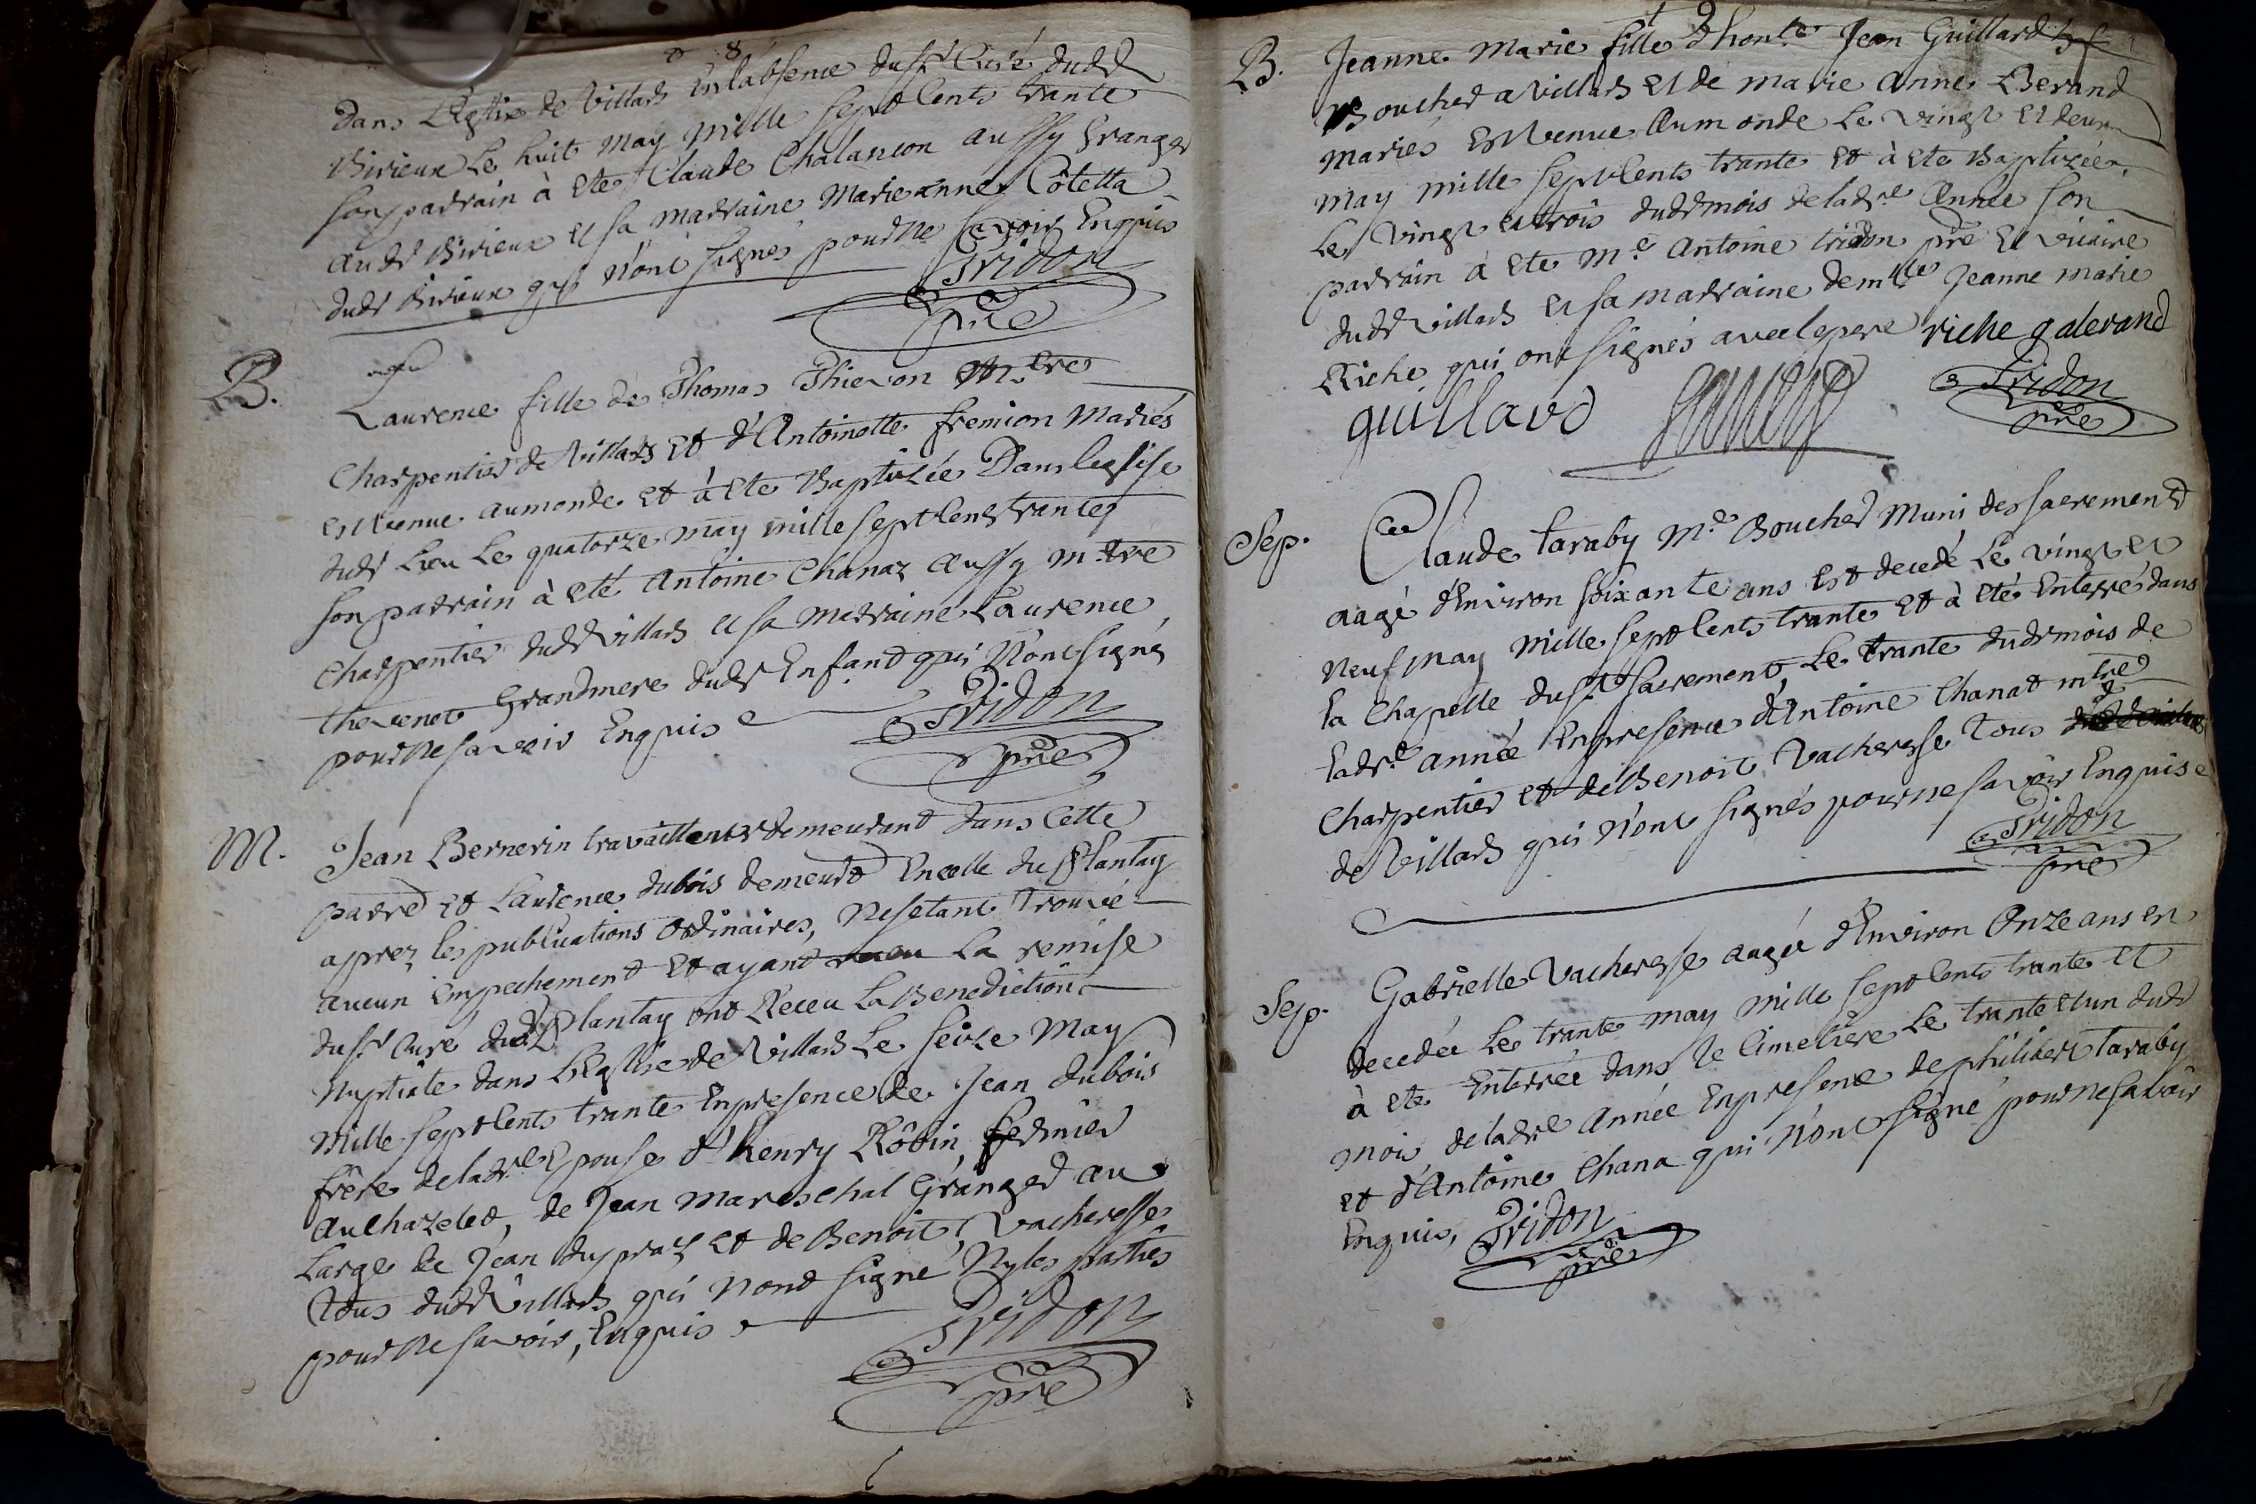 dans L'Eglise de Villars En l'absence du Sr Curé dudt
Birieux Le huit May Mille sept Cents trante
son parrain à eté Claude Chalancon aussy Granger
audt Birieux et sa marraine Marie anne Côtetta
dudt Birieux qui n'ont signés pour ne savoir Enquis
Tridon
pre
B.
Laurence fille de Thomas Thievon Mtre
Charpentier de Villars et d'Antoinette fremion Mariés
est venue au monde et à eté Baptizée Dans leglise
dudt Lieu Le quatorze may mille sept Cents trante
son parrain à eté Antoine Chanaz aussy mtre
Charpentier dudt Villars et sa marraine Laurence
thevenet Grandmere dudt Enfant qui n'ont signés
pour ne savoir Enquis
Tridon
pre
M.
Jean Bernerin travailleur demeurant dans Cette
parre et Laurence dubois demeurt En celle du Plantay
aprez les publications ordinaires, ne s'etant trouvé
aucun empechement et ayant la remise
du Sr Curé dudt Plantay ont Receu La Benediction
Nuptiale dans L'Eglise de Villars Le seize May
Mille sept Cents trante En presence de Jean dubois
frère de ladte Epouse d'henry Robin, fermier
au Chazelet, de Jean Mareschal Granger au
Large de Jean dupraz et de Benoit Vacheresse
tous dudt Villars qui n'ont signé Ny les parties
pour ne savoir, Enquis
Tridon
pre
B.
Jeanne Marie fille d'honte Jean Guillard
Boucher a Villars et de Marie Anne Berand
mariés est venue Au monde Le vingt et deux
May mille sept Cents trante et à eté Baptizée
Le vingt et trois dudt mois de ladte Année son
parrain à eté Me Antoine tridon pre et vicaire
dudt villars et sa marraine demlle Jeanne Marie
Riche qui ont signés avec le pere riche galerand
guillard
Tridon
pre
Sep.
Claude taraby Me Boucher Muni des sacrements
aagé d'Environ soixante ans est decedé Le vingt et
Neuf may mille sept Cents trante et à eté Enterré dans
la Chapelle du St Sacrement, Le trante dudt mois de
ladte année En presence d'Antoine Chanat mtre
Charpentier et de Benoit Vacheresse tous
de Villars qui n'ont signés pour ne savoir Enquis
Tridon
pre
Sep.
Gabrielle Vacheresse aagée d'Environ Onze ans est
decedée Le trante may mille sept Cents trante et
à eté Enterrée dans le Cimetiere Le trante et un dudt
mois de ladte Année En presence de philibert taraby
et d'Antoine Chana qui n'ont signé pour ne savoir
Enquis, Tridon
pre